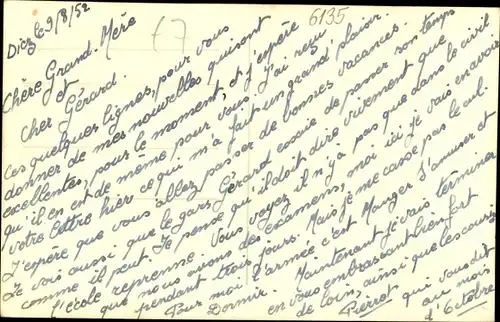 Diez le 9/8/52
6135
Chère Grand-Mère
et
Cher Gérard.
Ces quelques lignes, pour vous
donner de mes nouvelles qui sont
excellentes, pour le moment, et j'espère
qu'il en est de même pour vous. J'ai reçu
votre lettre hier ce qui m'a fait un grand plaisir.
J'espère que vous allez passer de bonnes vacances.
Je vois aussi que le gars Gérard essaie de passer son temps
comme il peut. Je pense qu'il doit dire vivement que
l'école reprenne. Vous voyez il n'y a pas que dans le civil
que nous avons des examens, moi ici je vais en avoir
pendant trois jours. Mais je me casse pas le cul.
Pour moi l'armée c'est Manger S'amuser et
Dormir. Maintenant je vais terminer
en vous embrassant bien fort
de loin, ainsi que les cousins
Pierrot qui vous dit
au mois
d'Octobre